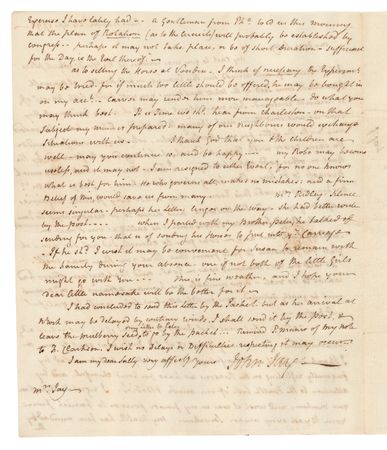 Expence I have lately had -- a Gentleman from Pha. told us this morning
that the plan of Rotation (as to the Circuits) will probably be established by
Congress -- perhaps it may not take place, or be of short Duration - sufficient
for the Day is the Evil thereof.
as to selling the Horse at Vendue. I think if necessary the Experiment
may be tried. for if much too little should be offered, he may be bought in
on my acct. Carver may render him more manageable. Do what you
may think best. It is Time we shd. hear from Charleston. on that
Subject my mind is prepared. many of our neighbours would exchange
Situations with us. I thank God that you & the children are
well - may you continue so, and be happy -- my Robe may become
useless, and it may not. I am resigned to either Event, for no one knows
what is best for him. He who governs all makes no mistakes; and a firm
Belief of this, would save us from many Mrs. Ridley's Silence
seems singular. perhaps her Letter lingers on the way. she had better write
by the post. --- when I parted with my Brother Peter, he talked of
sending for you. that is of sending his Horses to put into yr. Carriage
- If he shd. I wish it may be convenient for Susan to remain with
the Family during your absence. on if not both of the little Girls
might go with you - This is fine weather, and I hope your
Dear little namesake will be the better for it -
I had concluded to send this Letter by the Packet. but as his arrival at
N York may be delayed by contrary winds, I shall send it by the post, &
leave the mulberry seed, to go by the packet... Remind P. Munro of my note
to F. Clarkson. I wish no Delays or Difficulties respecting it may occur
I am my dear Sally very affecty. yours John Jay
Mrs. Jay